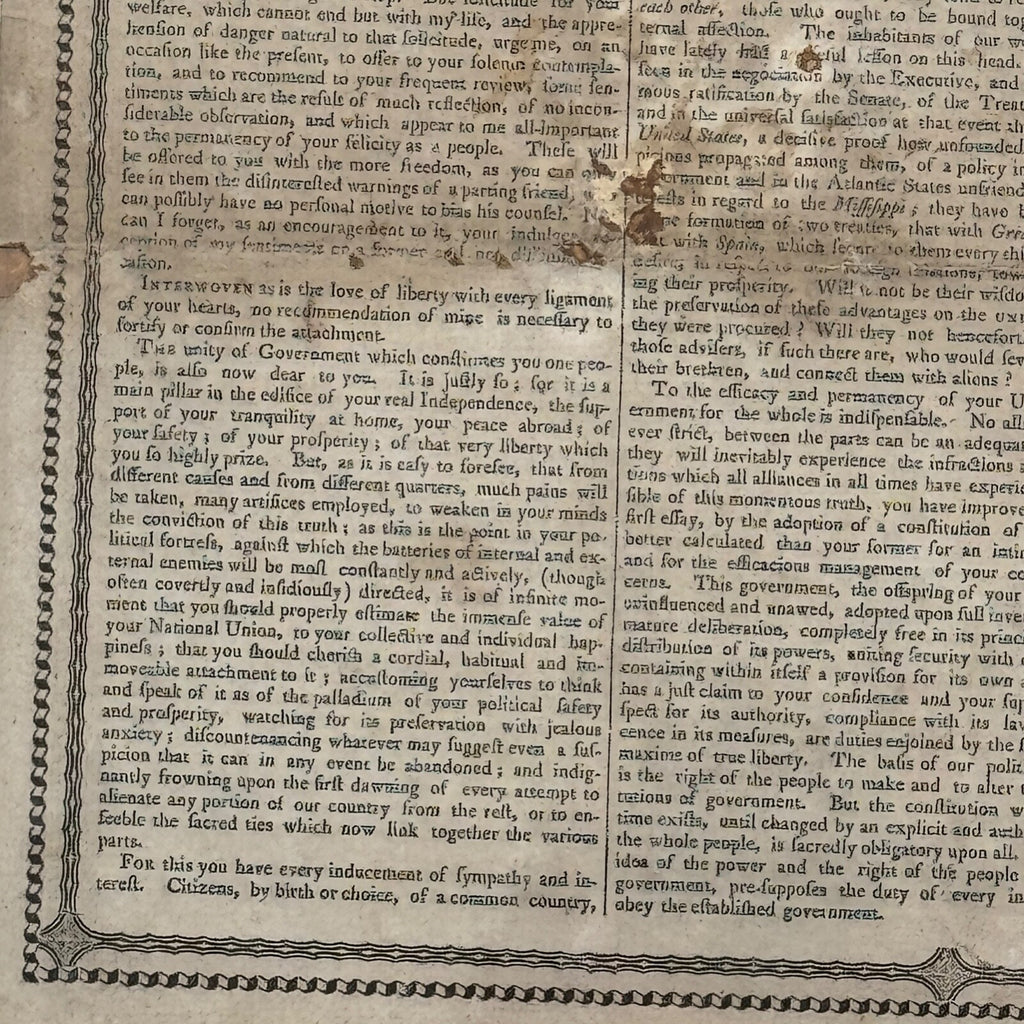 welfare, which cannot end but with my life, and the appre-
hension of danger natural to that ſolicitude, urge me, on an
occaſion like the preſent, to offer to your ſolemn contempla-
tion, and to recommend to your frequent review, ſome ſen-
timents which are the reſult of much reflection, of no incon-
ſiderable obſervation, and which appear to me all-important
to the permanency of your felicity as a people. Theſe will
be offered to you with the more freedom, as you can
ſee in them the diſintereſted warnings of a parting friend,
can poſſibly have no perſonal motive to bias his counſel.
can I forget, as an encouragement to it, your
ception of my ſentiments on a former and not
caſion.
INTERWOVEN as is the love of liberty with every ligament
of your hearts, no recommendation of mine is neceſſary to
fortify or confirm the attachment.
THE unity of Government which conſtitutes you one peo-
ple, is alſo now dear to you. It is juſtly ſo; for it is a
main pillar in the edifice of your real Independence, the ſup-
port of your tranquility at home, your peace abroad; of
your ſafety; of your proſperity; of that very liberty which
you ſo highly prize. But, as it is eaſy to foreſee, that from
different cauſes and from different quarters, much pains will
be taken, many artifices employed, to weaken in your minds
the conviction of this truth; as this is the point in your po-
litical fortreſs, againſt which the batteries of internal and ex-
ternal enemies will be moſt conſtantly and actively, (though
often covertly and inſidiouſly) directed, it is of infinite mo-
ment that you ſhould properly eſtimate the immenſe value of
your National Union, to your collective and individual hap-
pineſs; that you ſhould cheriſh a cordial, habitual and im-
moveable attachment to it; accuſtoming yourſelves to think
and ſpeak of it as of the palladium of your political ſafety
and proſperity, watching for its preſervation with jealous
anxiety; diſcountenancing whatever may ſuggeſt even a ſuſ-
picion that it can in any event be abandoned; and indig-
nantly frowning upon the firſt dawning of every attempt to
alienate any portion of our country from the reſt, or to en-
feeble the ſacred ties which now link together the various
parts.
FOR this you have every inducement of ſympathy and in-
tereſt. Citizens, by birth or choice, of a common country,
each other, thoſe who ought to be bound
ternal affection. The inhabitants of our
have lately had a leſſon on this head.
ſeen in the negociation by the Executive, and
mous ratification by the Senate, of the
and in the univerſal ſatisfaction at that event
United States, a deciſive proof how unfounded
picions propagated among them, of a policy
and in the Atlantic States
in regard to the Miſſiſippi; they have
formation of two treaties, that with
with Spain, which ſecure to them every
ing their proſperity. Will it not be their
the preſervation of theſe advantages on the
they were procured? Will they not
thoſe adviſers, if ſuch there are, who would
their brethren, and connect them with aliens?
To the efficacy and permanency of your
ernment for the whole is indiſpenſable. No
ever ſtrict, between the parts can be an
they will inevitably experience the infractions
tions which all alliances in all times have
ſible of this momentous truth, you have
firſt eſſay, by the adoption of a conſtitution of
better calculated than your former for an
and for the efficacious management of your
cerns. This government, the offspring of your
uninfluenced and unawed, adopted upon full
mature deliberation, completely free in its
diſtribution of its powers, uniting ſecurity with
containing within itſelf a proviſion for its own
has a juſt claim to your confidence and your
ſpect for its authority, compliance with its
cence in its meaſures, are duties enjoined by the
maxims of true liberty. The baſis of our
is the right of the people to make and to alter
tutions of government. But the conſtitution
time exiſts, until changed by an explicit and
the whole people, is ſacredly obligatory upon all.
idea of the power and the right of the people
government, pre-ſuppoſes the duty of every
obey the eſtabliſhed government.